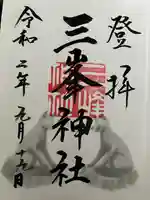 登拝
三峯神社
令和二年元月十五日